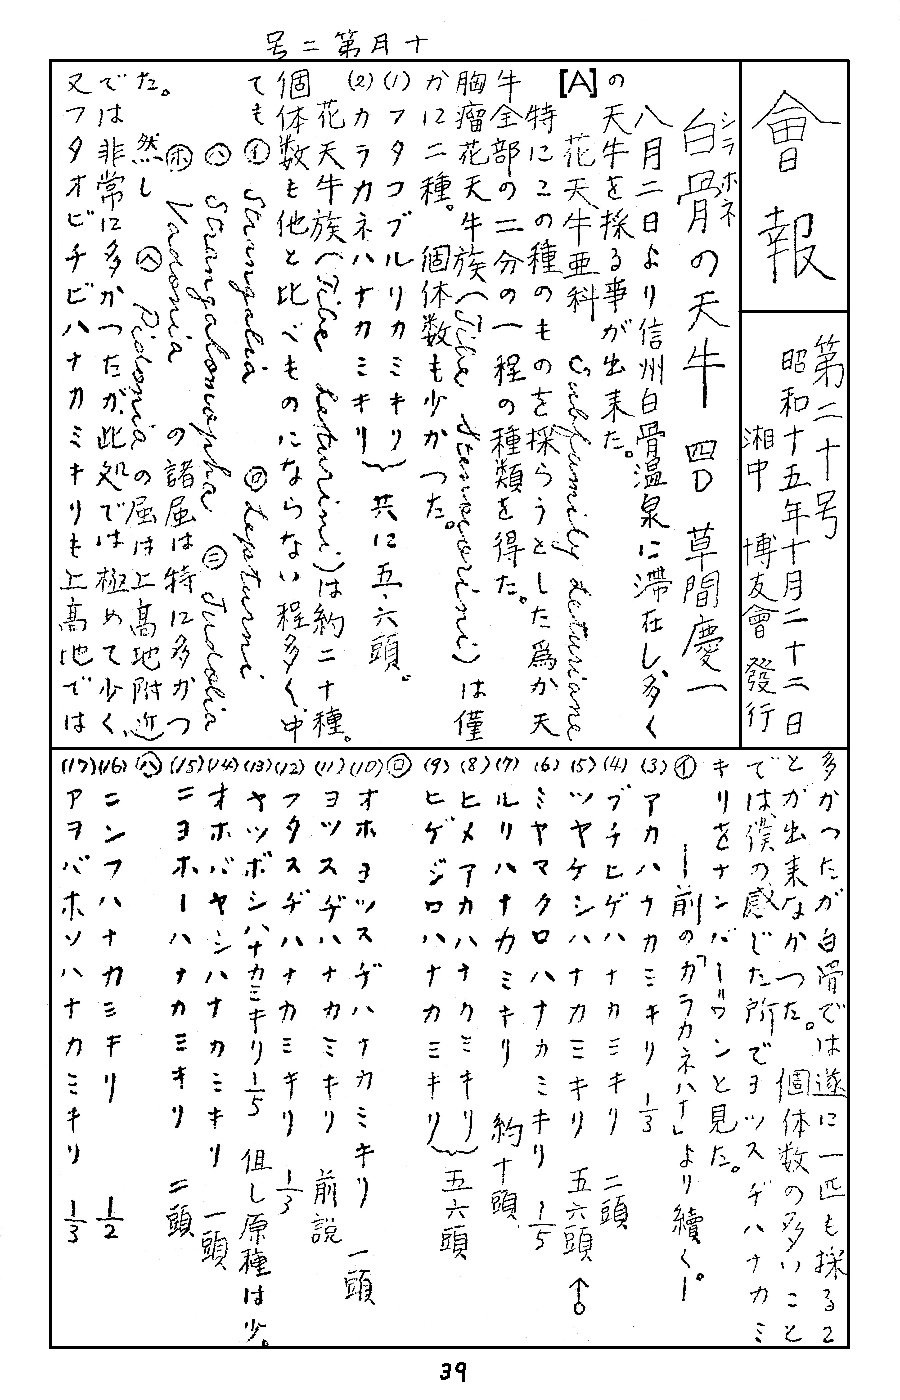 十月第二号
會報
第二十号
昭和十五年十月二十二日
湘中 博友會 發行
白骨の天牛 四D 草間慶一
シラホネ
八月二日より信州白骨温泉に滞在し、多く
の天牛を採る事が出来た。
[A] 花天牛亜科 Subfamily Leturiane
特にこの種のものを採らうとした爲か天
牛全部の二分の一程の種類を得た。
胸瘤花天牛族(Tibe Stenocorini)は僅
かに二種。個体数も少かつた。
(1) フタコブルリカミキリ
(2) カラカネハナカミキリ} 共に五・六頭。
花天牛族(Tibe Leturini)は約二十種。
個体数も他と比べものにならない程多く、中
ても ㋑ Strangalia ㋺ Lepturni
㋩ Strangalomopha ㊁ Judolia
㋭ Vadonia の諸屬は特に多かつ
た。然し ㋬ Pidonia の屬は上高地附近
では非常に多かつたが、此処では極めて少く、
又フタオビチビハナカミキリも上高地では
多かつたが白骨では遂に一匹も採るこ
とが出来なかつた。個体数の多いこと
では僕の感じた所でヨツスヂハナカミ
キリをナンバーワンと見た。
㋑ ー前の「カラカネハナ」より續くー。
(3) アカハナカミキリ 1/3
(4) ブチヒゲハナカミキリ 二頭
(5) ツヤケシハナカミキリ 五六頭 ↑o
(6) ミヤマクロハナカミキリ 1/5
(7) ルリハナカミキリ 約十頭
(8) ヒメアカハナカミキリ
(9) ヒゲジロハナカミキリ} 五六頭
㋺
(10) オホヨツスヂハナカミキリ 一頭
(11) ヨツスヂハナカミキリ 前説
(12) フタスヂハナカミキリ 1/3
(13) ヤツボシハナカミキリ 1/5 但し原種は少。
(14) オホバヤシハナカミキリ 一頭
(15) ニヨホーハナカミキリ 二頭
㋩
(16) ニンフハナカミキリ 1/2
(17) アヲバホソハナカミキリ 1/3
39